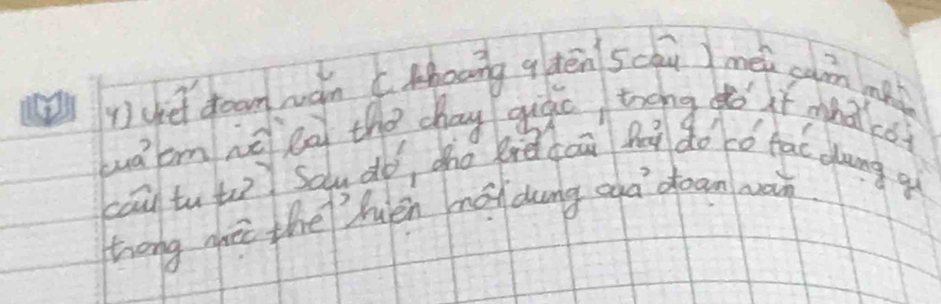 4) viết đoạn văn ( khoảng 4 đến 5 câu ) nêu cảm nhận
của em về bài thơ chạy giặc, trong đó ít nhất có 1
câu tu từ? Sau đó, cho biết câu hỏi đó có tác dụng gì
trong việc thể hiện nội dung của đoạn văn